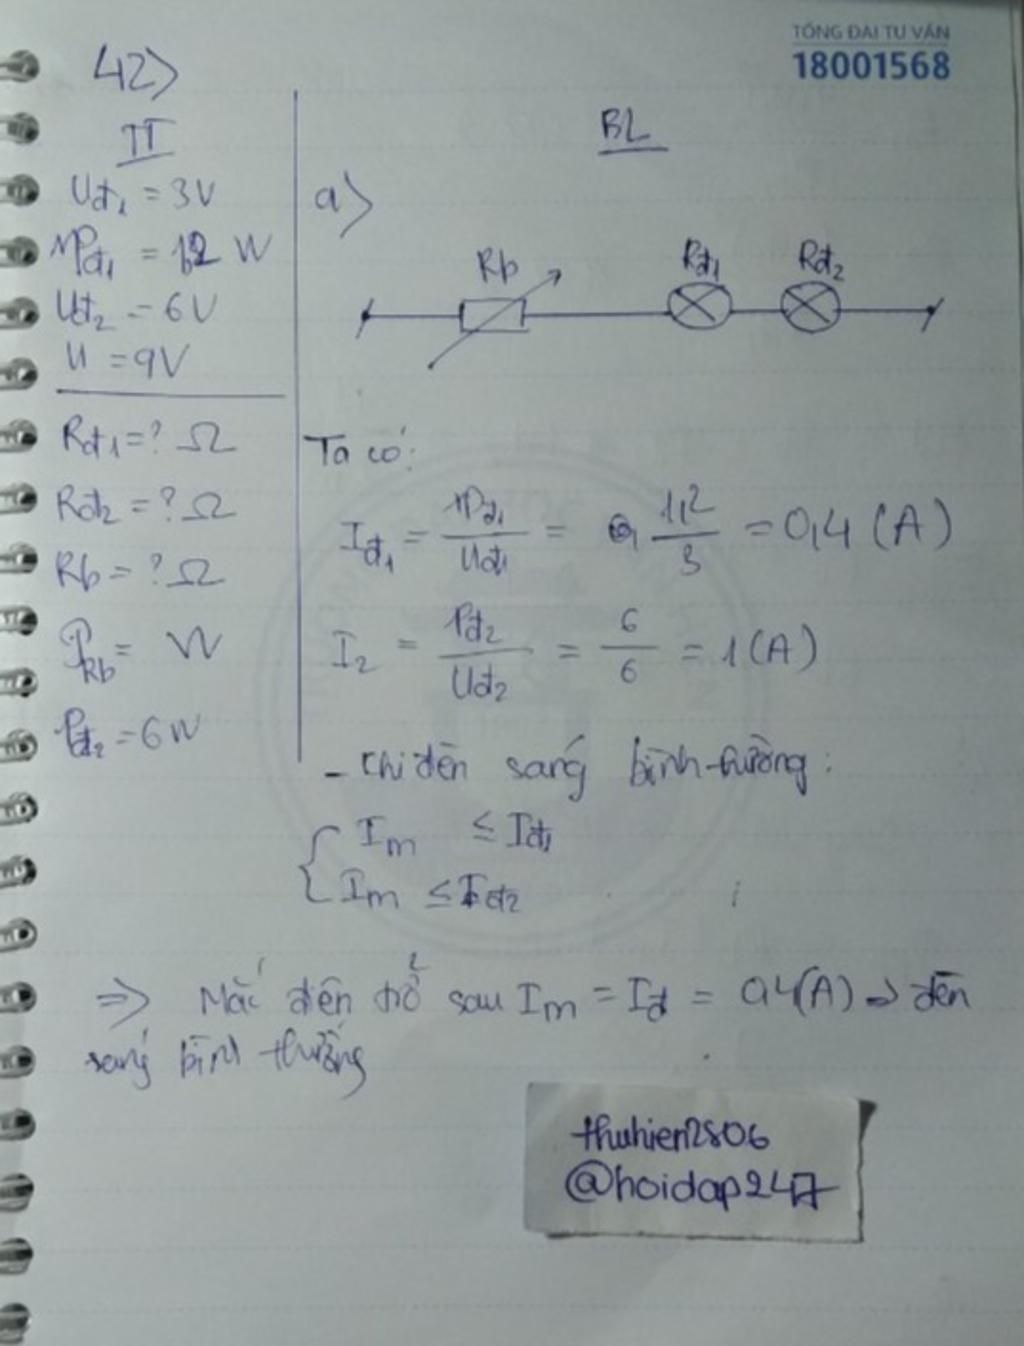 TỔNG ĐÀI TƯ VẤN
18001568
42>
TT
Uđ1 = 3V
Pđ1 = 1,2 W
Uđ2 = 6V
U = 9V
Rđ1 = ? Ω
Rđ2 = ? Ω
Rb = ? Ω
PRb = W
Pđ2 = 6W
BL
a>
Rb Rđ1 Rđ2
Ta có:
Iđ1 = Pđ1/Uđ1 = 1,2/3 = 0,4 (A)
I2 = Pđ2/Uđ2 = 6/6 = 1 (A)
- Khi đèn sáng bình thường:
{ Im ≤ Iđ1
Im ≤ Iđ2
=> Mắc điện trở sau Im = Iđ = 0,4(A) => đèn
sáng bình thường
thuhien2806
@hoidap247